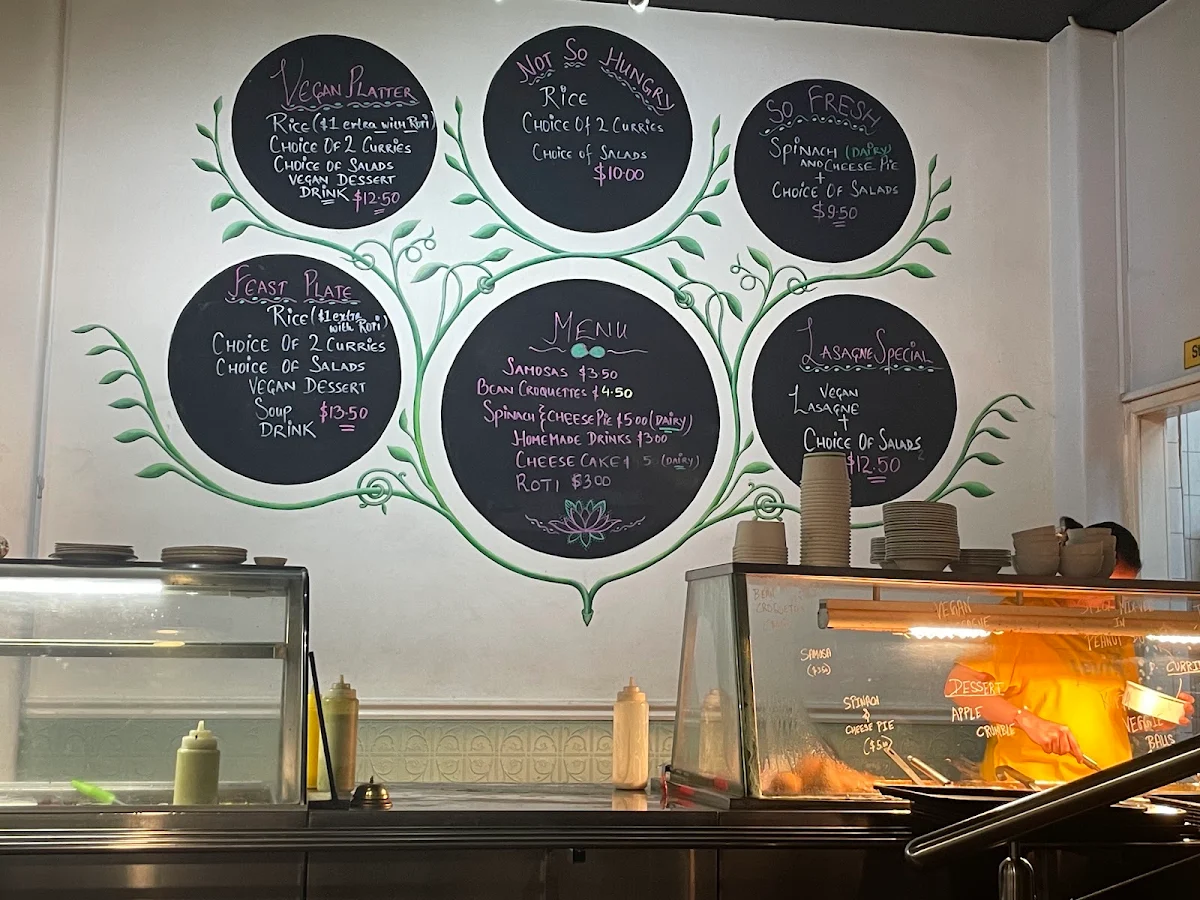 VEGAN PLATTER
RICE ($1 extra with Roti)
CHOICE OF 2 CURRIES
CHOICE OF SALADS
VEGAN DESSERT
DRINK $12.50
NOT SO HUNGRY
RICE
CHOICE OF 2 CURRIES
CHOICE OF SALADS
$10.00
SO FRESH
SPINACH (DAIRY)
AND CHEESE PIE
+
CHOICE OF SALADS
$9.50
FEAST PLATE
RICE ($1 extra
with Roti)
CHOICE OF 2 CURRIES
CHOICE OF SALADS
VEGAN DESSERT
SOUP $13.50
DRINK
MENU
SAMOSAS $3.50
BEAN CROQUETTES $4.50
SPINACH & CHEESE PIE $5.00 (DAIRY)
HOMEMADE DRINKS $3.00
CHEESE CAKE $ 5 (DAIRY)
ROTI $3.00
LASAGNE SPECIAL
VEGAN
LASAGNE
+
CHOICE OF SALADS
$12.50
BEAN
SAMOSA
($3.50)
SPINACH
&
CHEESE PIE
VEGAN
DESSERT
APPLE
CRUMBLE
IN
PEANUT
VEGGIE
BALLS